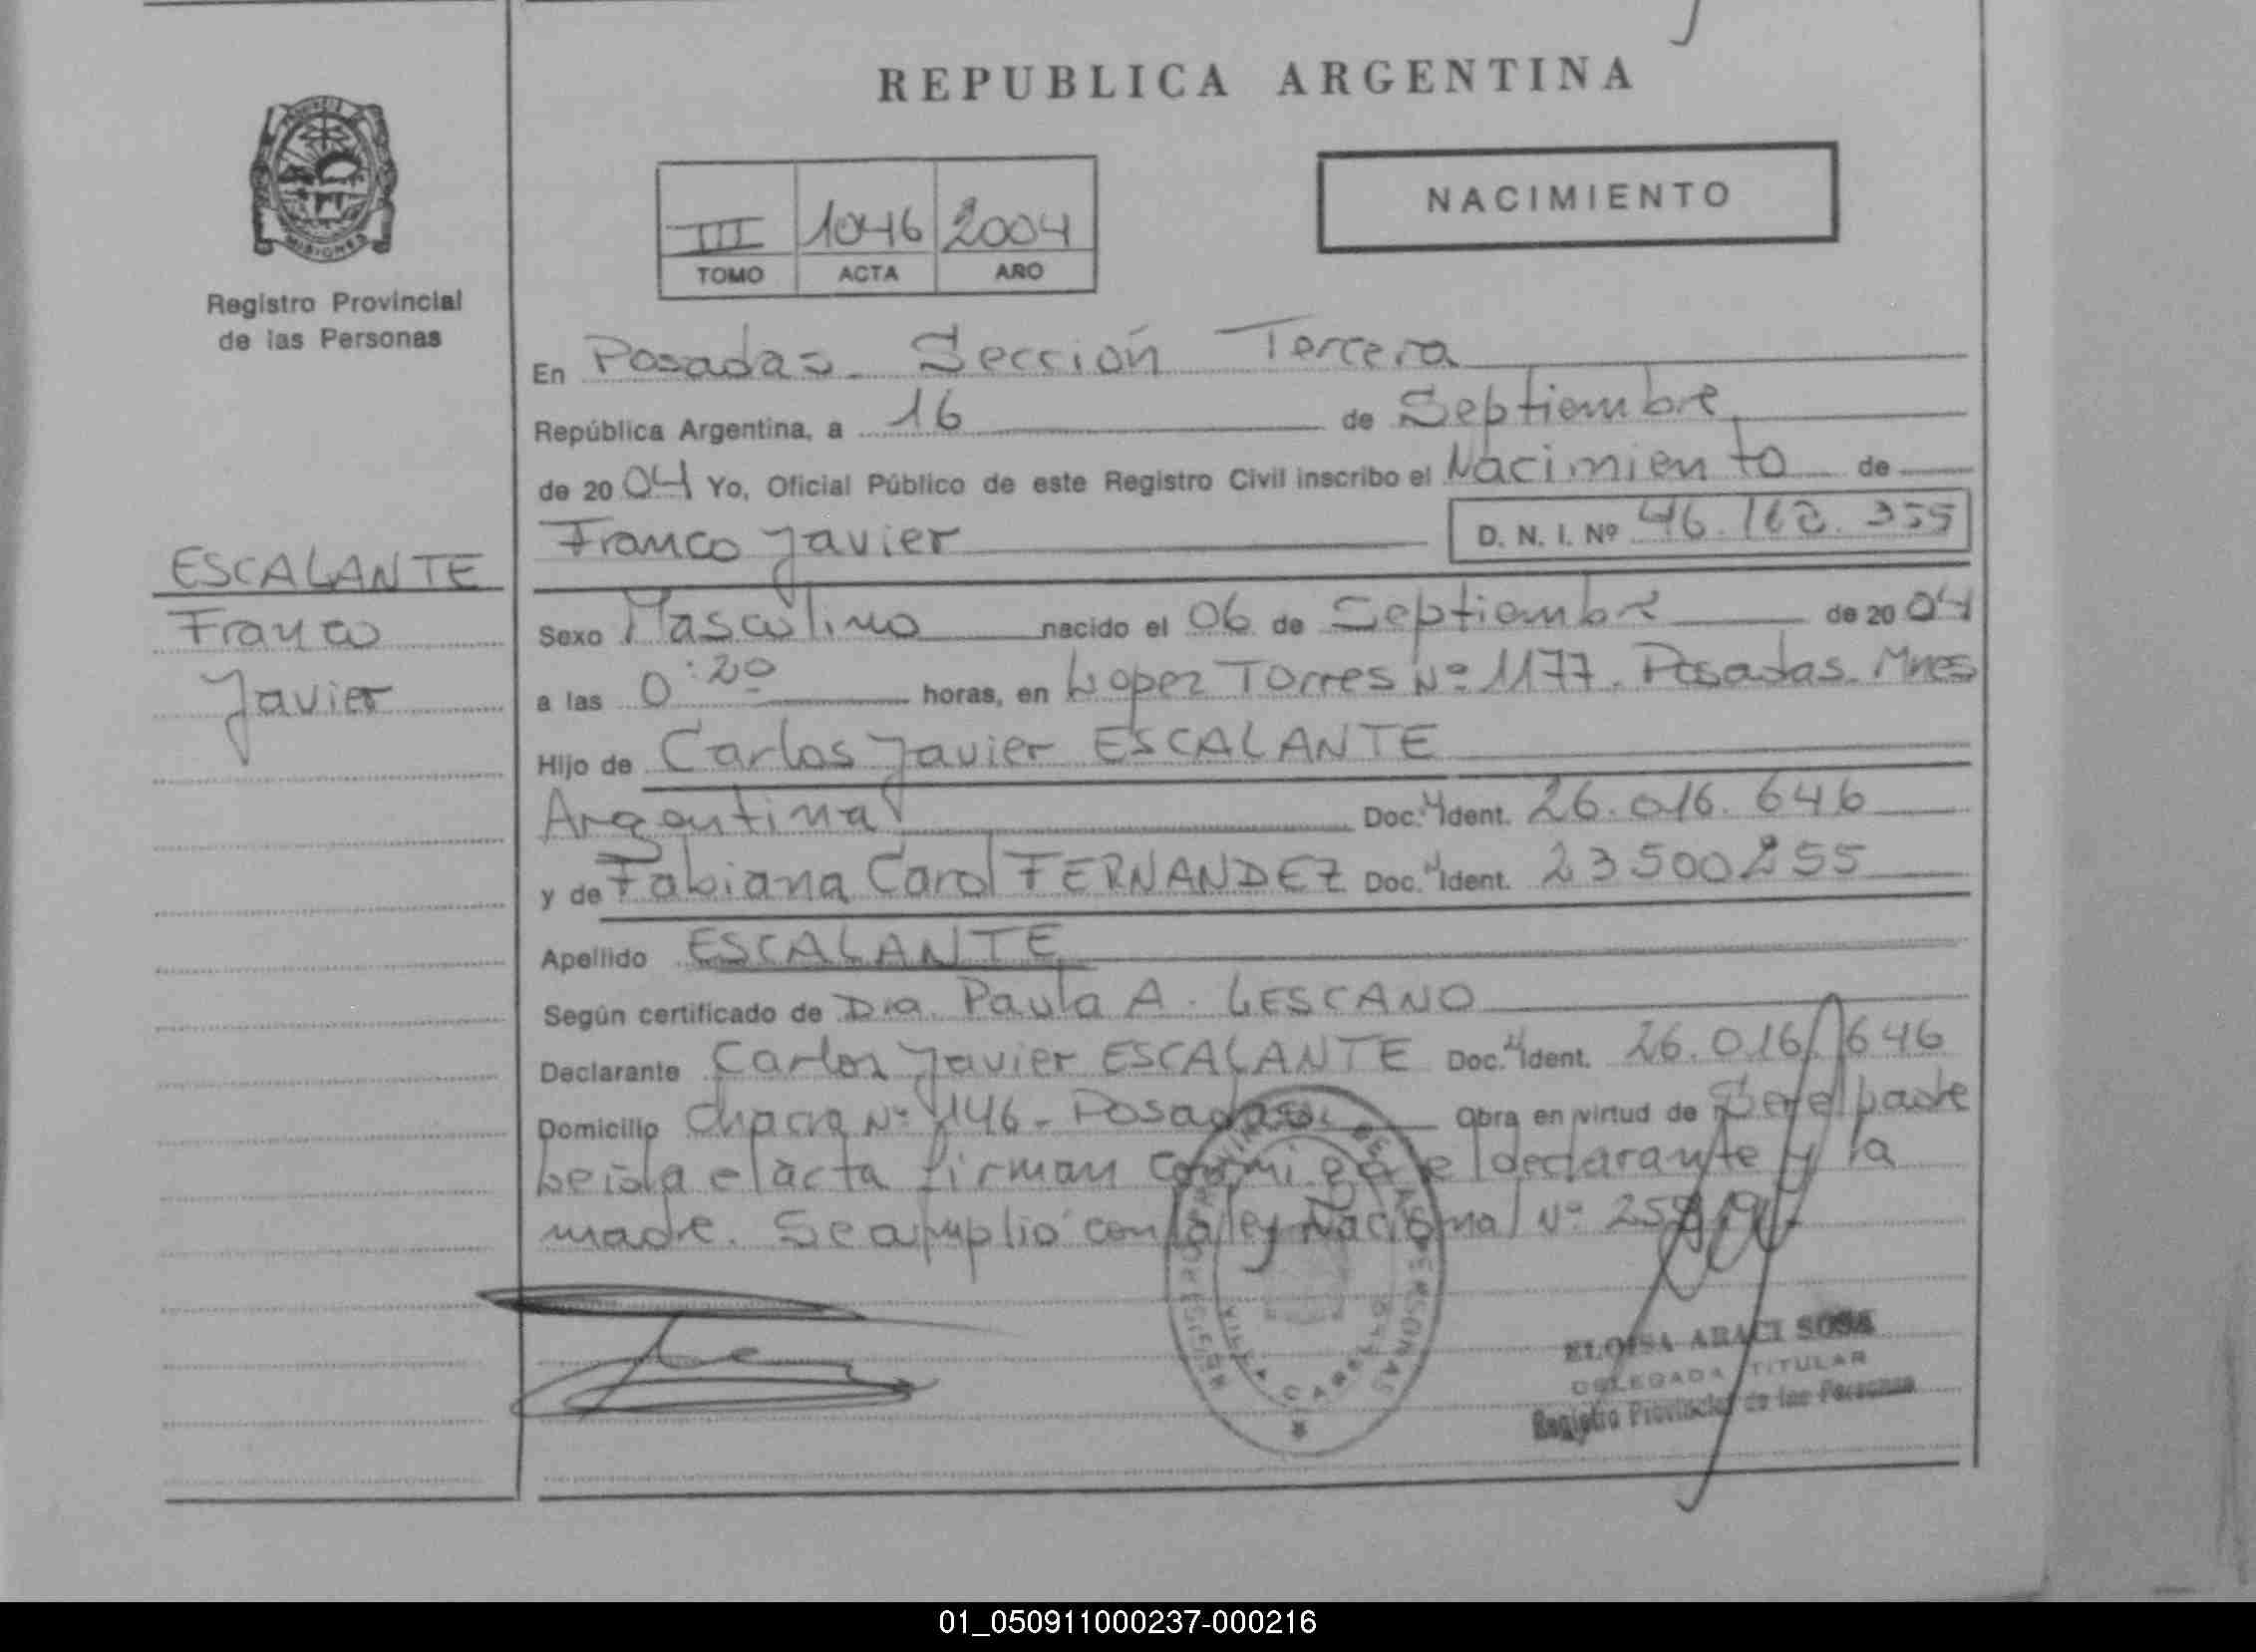 REPUBLICA ARGENTINA
NACIMIENTO
III 1046 2004
TOMO ACTA AÑO
MISIONES
Registro Provincial
de las Personas
ESCALANTE
Franco
Javier
En Posadas. Sección Tercera
República Argentina, a 16 de Septiembre
de 2004 Yo, Oficial Público de este Registro Civil inscribo el Nacimiento de
Franco Javier D. N. I. Nº 46.162.355
Sexo Masculino nacido el 06 de Septiembre de 2004
a las 0:20 horas, en Lopez Torres Nº 1177. Posadas. Mnes
Hijo de Carlos Javier ESCALANTE
Argentina Doc. Ident. 26.016.646
y de Fabiana Carol FERNANDEZ Doc. Ident. 23500255
Apellido ESCALANTE
Según certificado de Dra. Paula A. LESCANO
Declarante Carlos Javier ESCALANTE Doc. Ident. 26.016.646
Domicilio Chacra Nº 146 - Posadas. Obra en virtud de Ser el padre
Leída el acta firman conmigo el declarante y la
madre. Se amplió con la ley Nacional Nº
ELOISA ARACI SOSA
DELEGADA TITULAR
Registro Provincial de las Personas
01_050911000237-000216